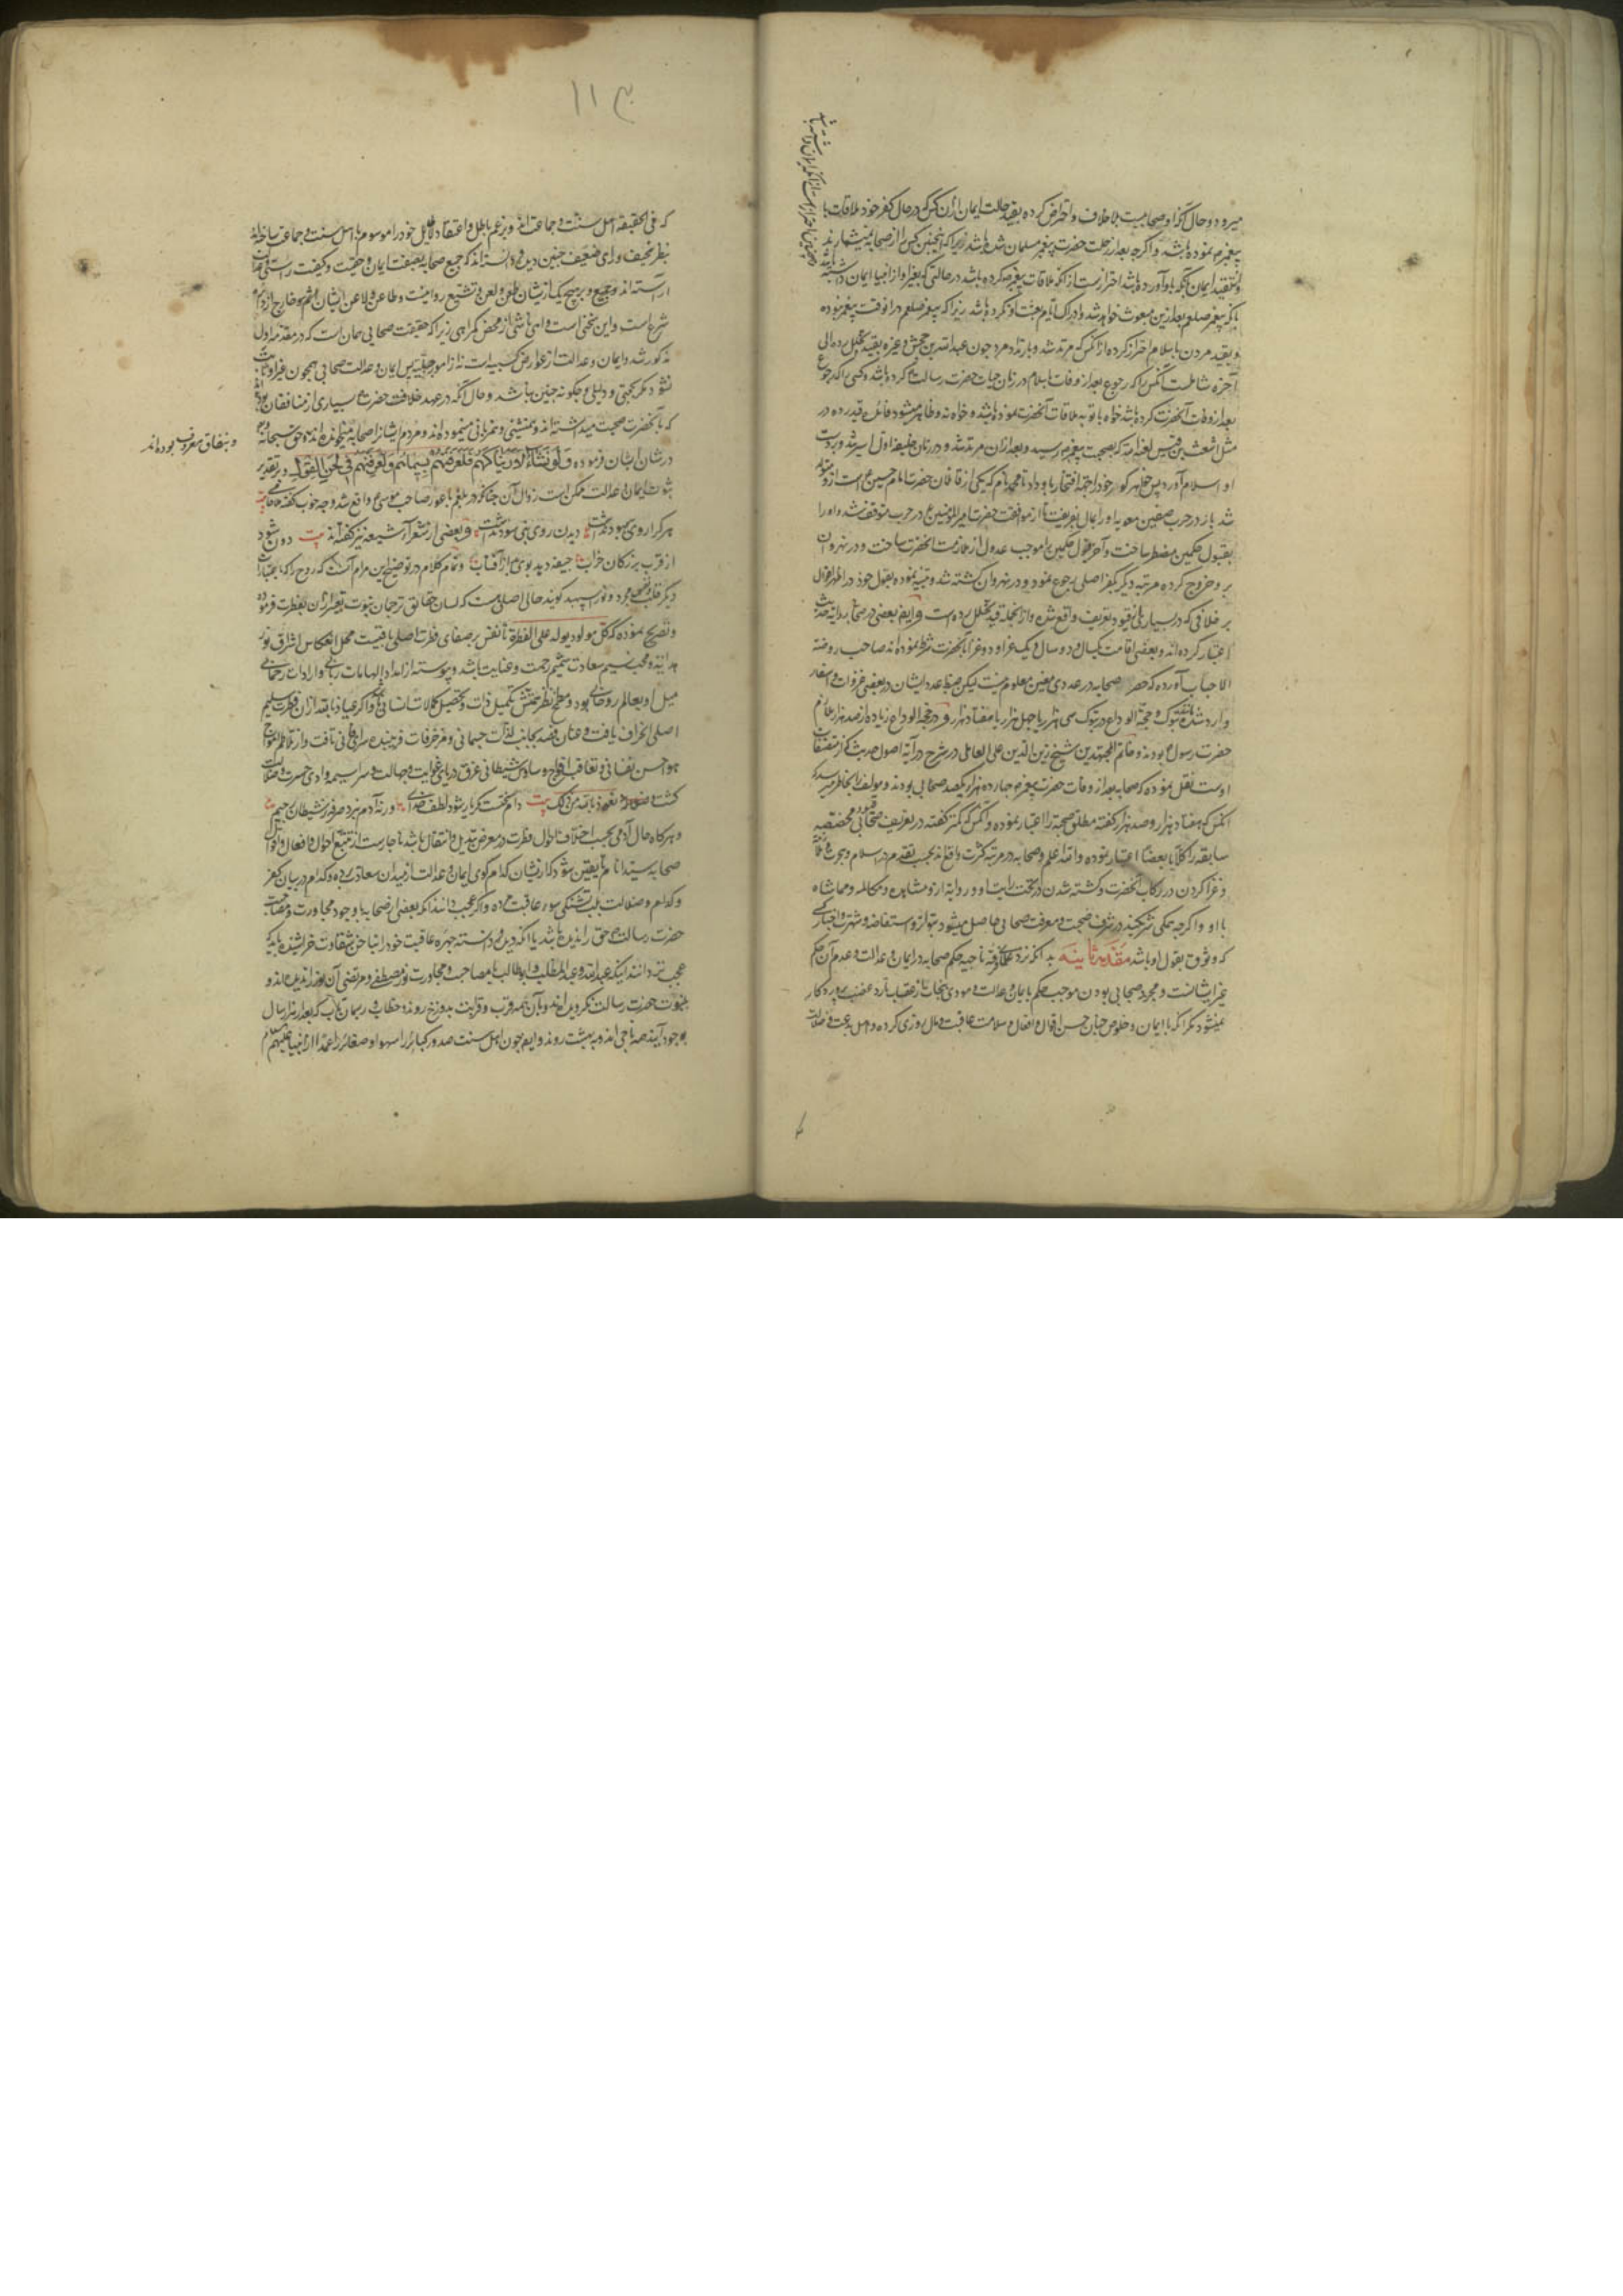 میرود و حال آنکه او صحابی نیست بلا خلاف و احتراض کرده بقید حالت ایمان از آن کس که در حال کفر خود ملاقات با
پیغمبر نموده باشد و اگرچه بعد از رحلت حضرت پیغمبر مسلمان شده باشد زیرا که اینچنین کس را از صحابه نمیشمارند
ایمان آنکه باو آورده باشد احتراز است از آنکه ملاقات پیغمبر کرده باشد در حالتی که بغیر او از انبیا ایمان داشته
که پیغمبر صلعم بعد ازین مبعوث خواهد شد و ادراک ایام بعثت او نکرده باشد زیرا که پیغمبر صلعم در آن وقت پیغمبر نبوده
و بقید مردن باسلام احتراز کرده از آنکس که مرتد شد و بارتداد مرد چون عبدالله بن جحش و غیره و بقید تخلل رده الی
آخره شاملست آنکس را که رجوع بعد از وفات باسلام در زمان حیات حضرت رسالت کرده باشد و کسی را که رجوع
بعد از وفات آنحضرت کرده باشد خواه باتو به ملاقات آنحضرت نموده باشد و خواه نه و ظاهر میشود فائده قید رده در
مثل اشعث بن قیس لعنه الله که بصحبت پیغمبر رسید و بعد از آن مرتد شد و در زمان خلیفه اول اسیر شد و بر دست
او اسلام آورد پس خواهر کور خود را باو داد تا محمد نام که یکی از قاتلان حضرت امام حسین است ازو متولد
شد باز در حرب صفین معویه او را بمال بفریفت تا از موافقت حضرت امیرالمؤمنین در حرب متوقف شد و او را
بقبول حکمین مضطر ساخت و آخر قبول حکمین را موجب عدول از ملازمت آنحضرت ساخت و در نهروان
برو خروج کرده مرتبه دیگر بکفر اصلی رجوع نمود و در نهروان کشته شد و تنبیه نموده بقول خود در اظهر اقوال
بر خلافی که در بسیاری ازین قیود تعریف واقع شده و از آنجمله قید تخلل رده است و ایضا بعضی در صحابی روایت حدیث
اعتبار کرده اند و بعضی اقامت یکسال و دو سال و یک غزا و دو غزا با آنحضرت شرط نموده اند صاحب روضة
الاحباب آورده که حصر صحابه در عددی معین معلوم نیست لیکن ضبط عدد ایشان در بعضی غزوات و اسفار
وارد شده تبوک و حجة الوداع در تبوک سی هزار یا چهل هزار یا هفتاد هزار و در حجة الوداع زیاده از صد هزار ملازم
حضرت رسول بودند و خاتم المجتهدین شیخ زین الدین علی العاملی در شرح درایه اصول حدیث که از مصنفات
اوست نقل نموده که صحابه بعد از وفات حضرت پیغمبر صد و چهارده هزار صحابی بودند و مولف را بخاطر میرسد که
آنکس که هفتاد هزار و صد هزار گفته مطلق صحبة را اعتبار نموده و آنکس که کمتر گفته در تعریف صحابی قیود مختصه
سابقه را کلا یا بعضا اعتبار نموده والله اعلم و صحابه در مرتبه کثرت واقع اند بحسب تقدم در اسلام و هجرت
و غزا کردن در رکاب آنحضرت و کشته شدن در تحت رایت او و روایة ازو و مشاهده و مکالمه و مماشاة
با او و اگرچه همگی شریکند در شرف صحبت و معرفت صحابی حاصل میشود بتواتر و استفاضه و شهرت و اخبار کسی
که وثوق بقول او باشد مقدمه ثانیه بدانکه نزد علمای فرقه ناجیه حکم صحابه در ایمان و عدالت و عدم آن حکم
غیر ایشانست و مجرد صحابی بودن موجب حکم بایمان و عدالت و مودی بنجات از عقاب نار و غضب پروردگار
نمیشود مگر آنکه با ایمان و خلوص جنان حسن اقوال و افعال و سلامت عاقبت و مال روزی کرده و اهل بدعت و ضلالت
۱۱۳
که فی الحقیقه اهل سنت و جماعت اند و بزعم باطل و اعتقاد لاطایل خود را موسوم باهل سنت و جماعت ساخته اند
بنظر نحیف و رای ضعیف چنین دیده و دانسته اند که جمیع صحابه بصفت ایمان و حقیت و کیفیت راستی عدالت
آراسته اند و بر هیچ یک از ایشان طعن و لعن و تشنیع روا نیست و طاعن و لاعن ایشان آثم و خارج از دایره
شرع است و این سخنی است واهی ناشی از محض گمراهی زیرا که حقیقت صحابی همان است که در مقدمه اول
مذکور شد و ایمان و عدالت از عوارض کسبیه است نه از امور جبلیه پس ایمان و عدالت صحابی همچون غیر او ثابت
نشود مگر بحجتی و دلیلی و چگونه چنین باشد و حال آنکه در عهد خلافت حضرت بسیاری از منافقان بوده اند
که با آنحضرت صحبت میداشته اند و همنشینی و همزبانی مینموده اند و مردم ایشانرا صحابه میخوانده اند و حق سبحانه
و بنفاق معروف بوده اند
در شان ایشان فرموده وَلَو نَشَآءُ لَاَرَیناکَهُم فَلَعَرَفتَهُم بِسِیماهُم وَلَتَعرِفَنَّهُم فی لَحنِ القَول و بر تقدیر
ثبوت ایمان و عدالت ممکن است زوال آن چنانکه در بلعم باعور صاحب موسی واقع شد و چه خوب گفته ملا جامی بیت
هر کرا روی بهبود نداشت دیدن روی نبی سود نداشت و بعضی از شعراء شیعه نیز گفته اند بیت دون شود
از قرب بزرگان خراب جیفه دهد بوی بد از آفتاب و تمام کلام در توضیح این مرام آنست که روح را که بعبارات
دیگر قلب و نفس مجرد و نور اسپهبد گویند حالی اصلی هست که لسان حقایق ترجمان نبوت تعبیر از آن بفطرت فرموده
و تصریح نموده که کل مولود یولد علی الفطرة تا نفس بر صفای فطرت اصلی باقیست محل انعکاس اشراق نور
هدایت و مهب نسیم سعادت شمیم رحمت و عنایت باشد و پیوسته از امداد الهامات ربانی و ارادات رحمانی
میل او بعالم روحانی بود و مطمح نظر همتش تکمیل ذات و تحصیل کمالات انسانی و اگر عیاذا بالله از آن فطرت سلیم
اصلی انحراف یافت و عنان قصد بجانب لذات جسمانی و مزخرفات فریبنده سرای فانی تافت و از تلاطم امواج
هواجس نفسانی و تعاقب افواج وساوس شیطانی غرق دریای غوایت و جهالت و سراسیمه وادی حسرت و ضلالت
کشت نعوذ بالله من ذلک بیت دام سختست مگر یار شود لطف خدای ورنه آدم نبرد صرفه ز شیطان رجیم
و هرگاه حال آدمی بحسب اختلاف احوال فطرت در معرض تبدیل و انتقال باشد ناچارست از تتبع احوال و افعال و اقوال
صحابه سید انام تا یقین شود که از ایشان کدام گوی ایمان و عدالت از میدان سعادت برده و کدام در بیابان کفر
و کدام و ضلالت بلب تشنگی سوء عاقبت مرده و اگر عجب دانند آنکه بعضی از صحابه با وجود مجاورت و مصاحبت
حضرت رسالت حق را ندیده باشد یا آنکه دیده و دانسته چهره عاقبت خود را بناخن شقاوت خراشیده باید که
عجب تر دانند اینکه عبدالله و عبدالمطلب و ابوطالب با مصاحبت و مجاورت نور مصطفی و مرتضی آن نور را ندیده اند و
بنبوت حضرت رسالت نگرویده اند و با آن همه قرب و قرابت بدوزخ روند و حطاب و ریسمان تاب که بعد از هزار سال
بوجود آیند همه ناجی اند و به بهشت روند و ایضا چون اهل سنت صدور کبائر را سهوا و صغائر را عمدا از انبیا علیهم السلام